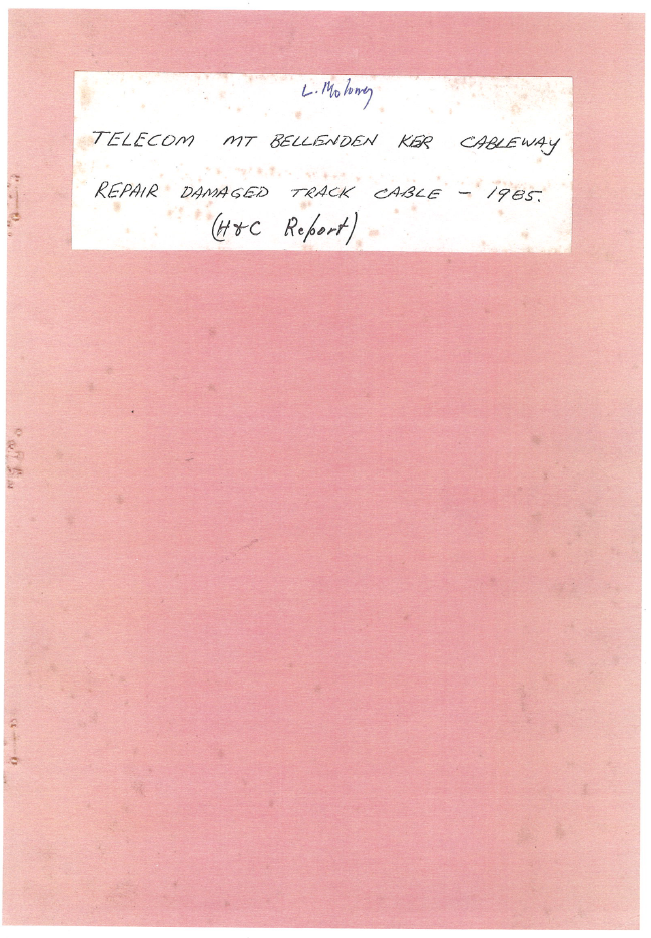 L. Maloney
TELECOM MT BELLENDEN KER CABLEWAY
REPAIR DAMAGED TRACK CABLE - 1985.
(H&C Report)